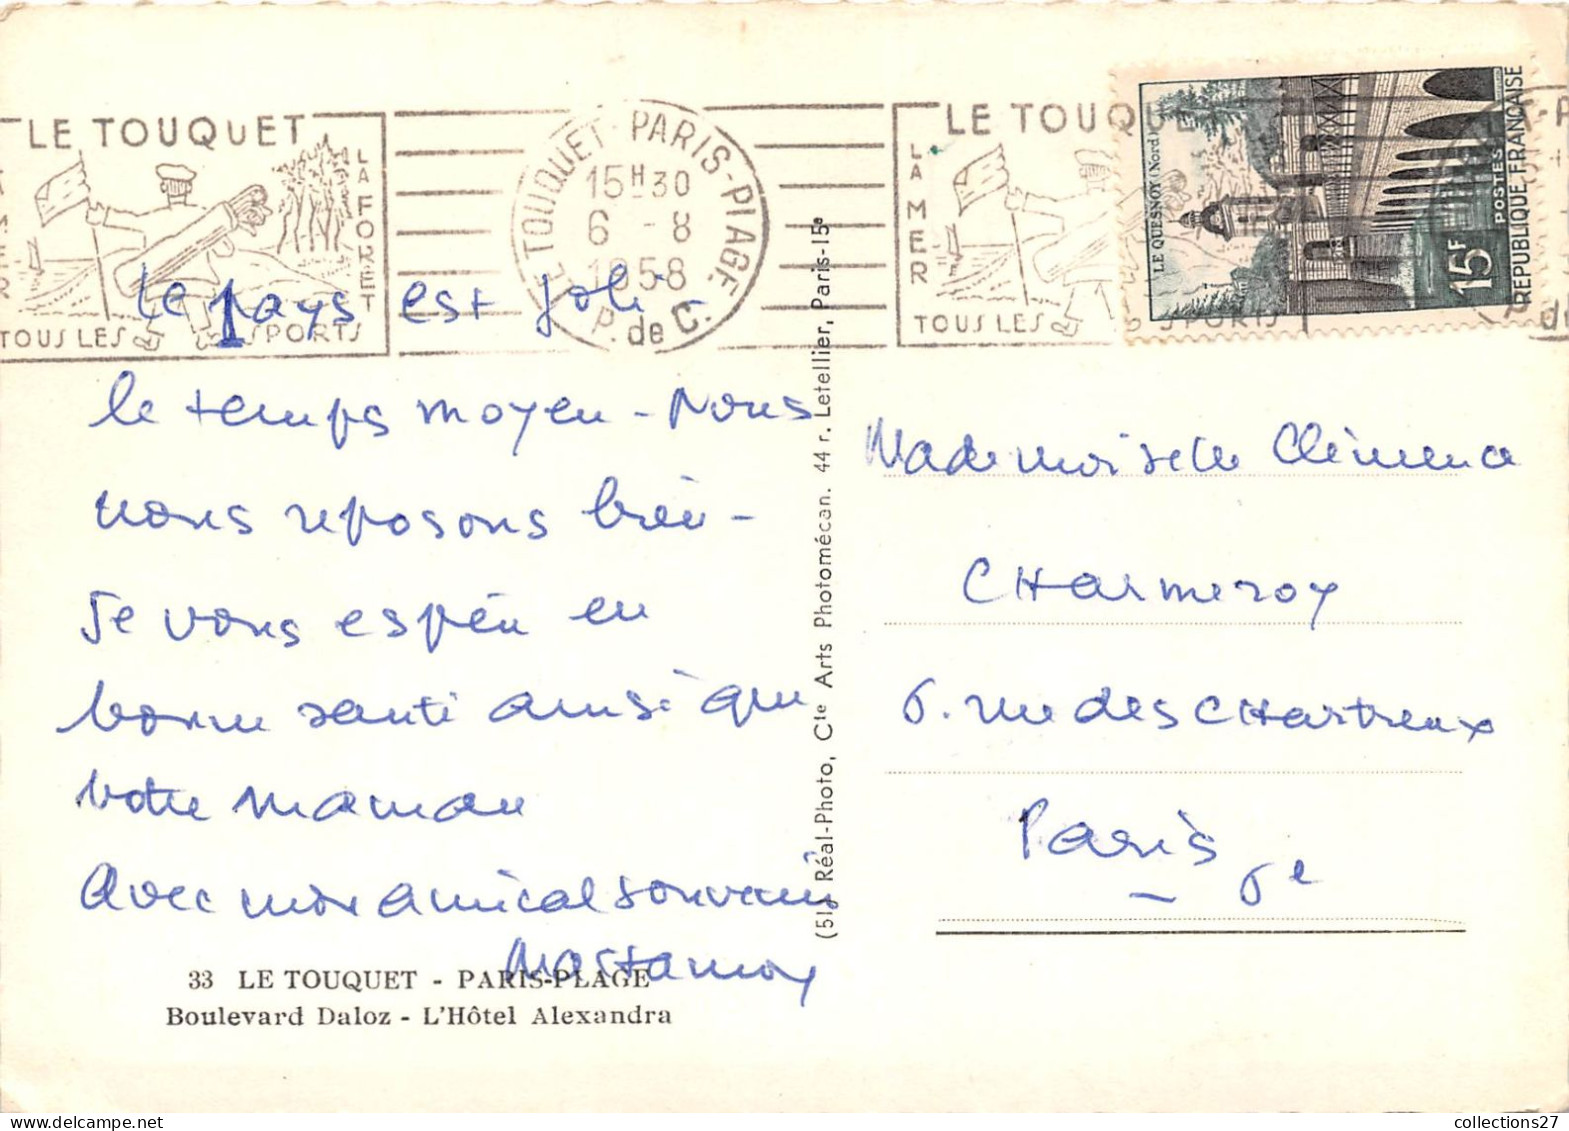 LE TOUQUET
LA MER
LA FORET
TOUS LES SPORTS
LE TOUQUET-PARIS-PLAGE
15H30
6 - 8
1958
P. de C.
LE TOUQUET
LA MER
TOUS LES SPORTS
LE QUESNOY (Nord)
15F
POSTES
REPUBLIQUE FRANÇAISE
Le pays est joli
le temps moyen - Nous
nous reposons bien -
Je vous espère en
bonne santé ainsi que
votre maman
Avec mon amical souvenir
33 LE TOUQUET - PARIS-PLAGE
Boulevard Daloz - L'Hôtel Alexandra
(51) Réal-Photo, Cte Arts Photomécan. 44 r. Letellier, Paris-15e
Mademoiselle Clémence
CHarmeroy
6. rue des CHartreux
Paris 6e
collections27